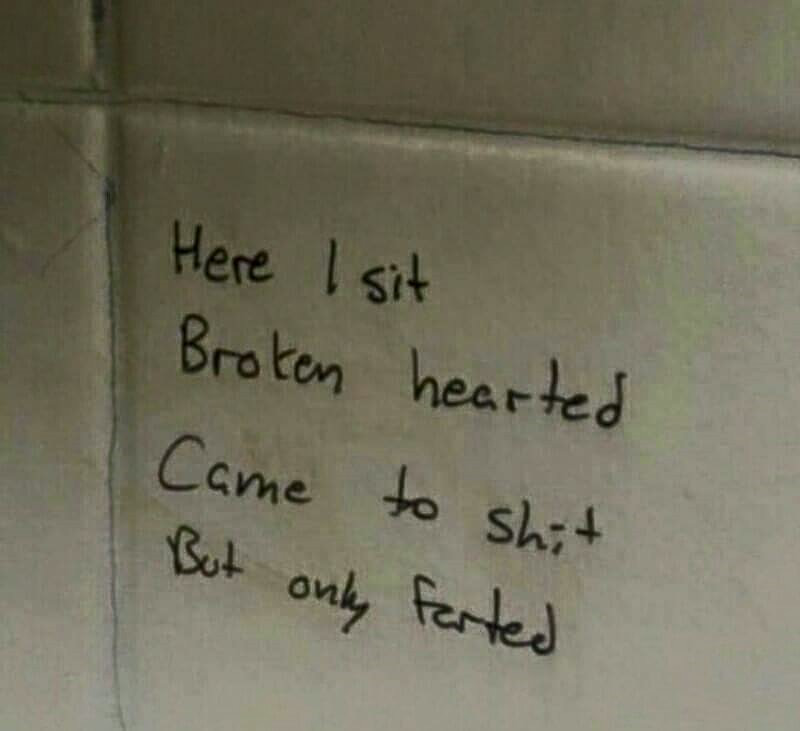 Here I sit
Broken hearted
Came to shit
But only farted